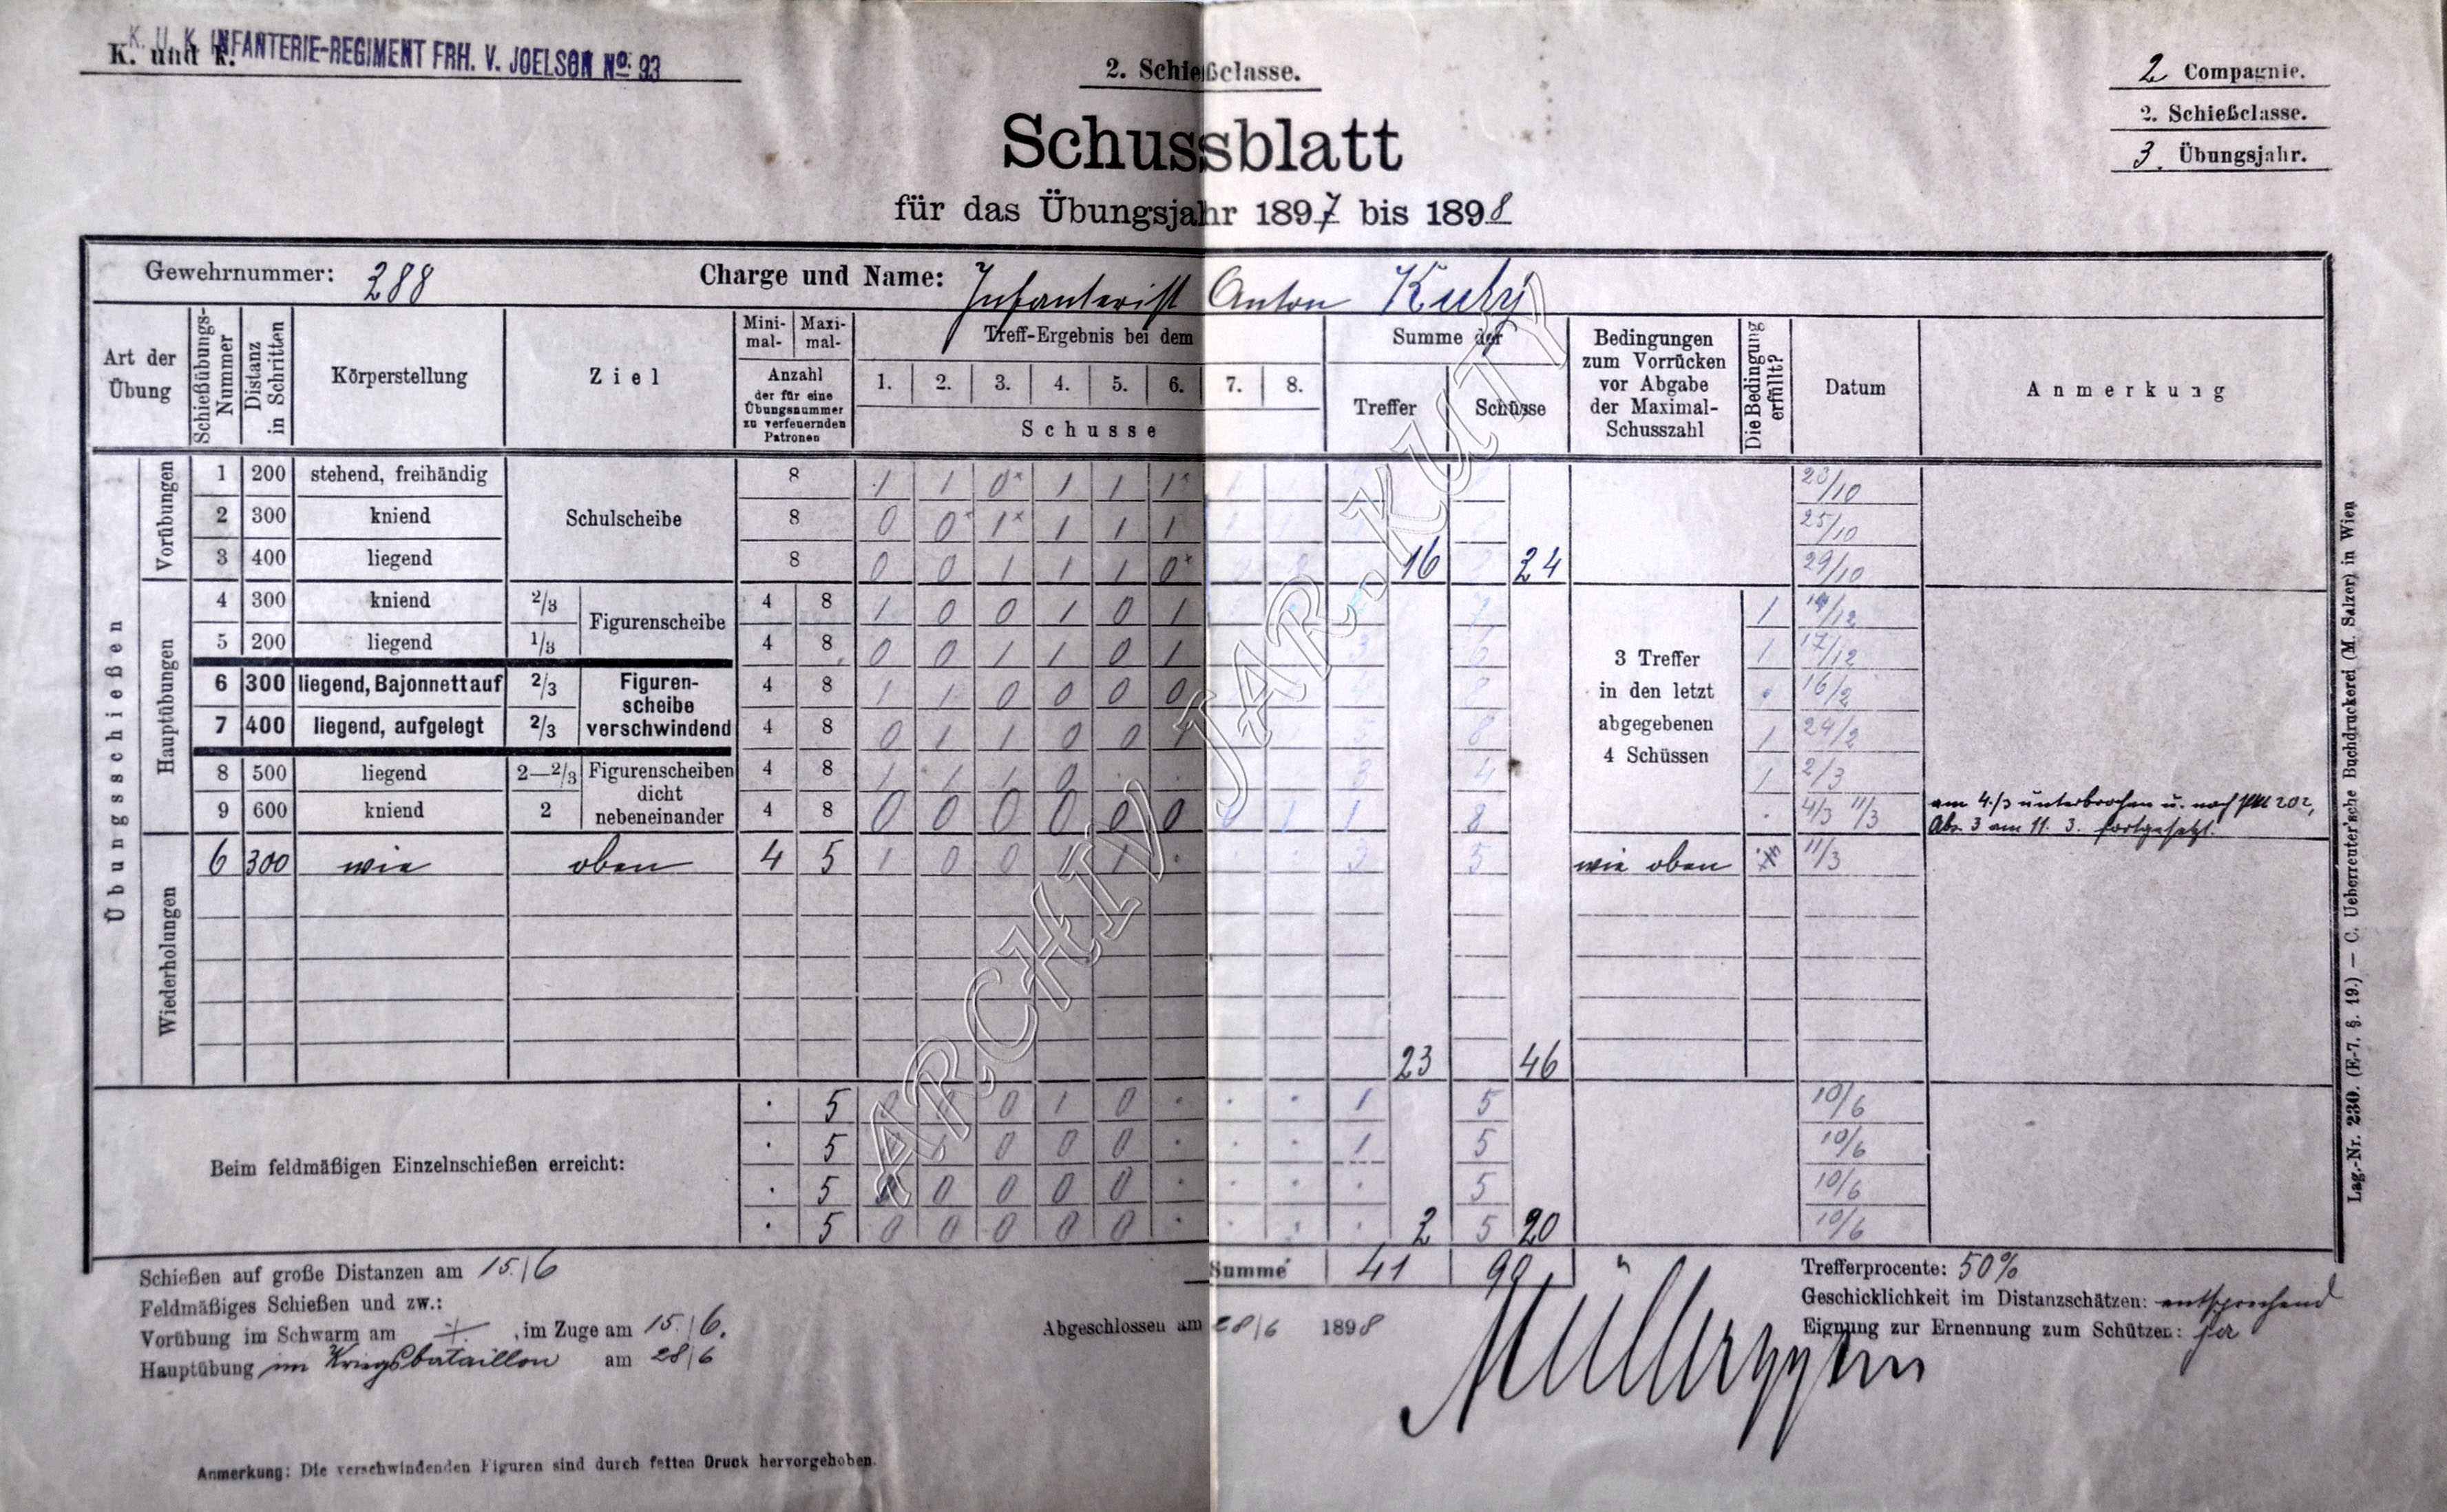 K. und k. K. U. K. INFANTERIE-REGIMENT FRH. V. JOELSON No. 93
2. Schießclasse.
2 Compagnie.
2. Schießclasse.
3. Übungsjahr.
Schussblatt
für das Übungsjahr 1897 bis 1898
Gewehrnummer: 288 Charge und Name: Infanterist Anton Kuty
Art der Übung
Schießübungs-Nummer
Distanz in Schritten
Körperstellung
Ziel
Mini-mal- Maxi-mal-
Anzahl
der für eine
Übungsnummer
zu verfeuernden
Patronen
Treff-Ergebnis bei dem
1. 2. 3. 4. 5. 6. 7. 8.
Schusse
Summe der
Treffer Schüsse
Bedingungen
zum Vorrücken
vor Abgabe
der Maximal-
Schusszahl
Die Bedingung erfüllt?
Datum
Anmerkung
Übungsschießen
Vorübungen
1 200 stehend, freihändig Schulscheibe 8 1 1 0* 1 1 1* 23/10
2 300 kniend 8 0 0* 1* 1 1 1 25/10
3 400 liegend 8 0 0 1 1 1 0* 16 24 29/10
Hauptübungen
4 300 kniend 2/3 Figurenscheibe 4 8 1 0 0 1 0 1 7 1 14/12
5 200 liegend 1/3 4 8 0 0 1 1 0 1 3 6 1 17/12
6 300 liegend, Bajonnett auf 2/3 Figuren-scheibe verschwindend 4 8 1 1 0 0 0 0 8 16/2
7 400 liegend, aufgelegt 2/3 4 8 0 1 1 0 0 1 5 8 1 24/2
8 500 liegend 2—2/3 Figurenscheiben dicht nebeneinander 4 8 1 1 1 0 3 4 1 2/3
9 600 kniend 2 4 8 0 0 0 0 0 0 0 1 1 8 4/3 11/3
3 Treffer
in den letzt
abgegebenen
4 Schüssen
am 4./3 unterbrochen u. nach 202,
Abs. 3 am 11. 3. fortgesetzt.
Wiederholungen
6 300 wie oben 4 5 1 0 0 1 1 . . . 3 5 wie oben 11/3
23 46
Beim feldmäßigen Einzelnschießen erreicht:
. 5 0 0 0 1 0 . . . 1 5 10/6
. 5 1 0 0 0 . . . 1 5 10/6
. 5 0 0 0 0 0 . . . . 5 10/6
. 5 0 0 0 0 0 . . . . 2 5 20 10/6
Summe 41 90
Schießen auf große Distanzen am 15./6
Feldmäßiges Schießen und zw.:
Vorübung im Schwarm am , im Zuge am 15./6.
Hauptübung im Kriegsbataillon am 28/6
Abgeschlossen am 28/6 1898
Trefferprocente: 50%
Geschicklichkeit im Distanzschätzen: entsprechend
Eignung zur Ernennung zum Schützen:
Anmerkung: Die verschwindenden Figuren sind durch fetten Druck hervorgehoben.
Lag.-Nr. 230. (E-7, §. 19.) — C. Ueberreuter'sche Buchdruckerei (M. Salzer) in Wien
ARCHIV JAR.KUTY